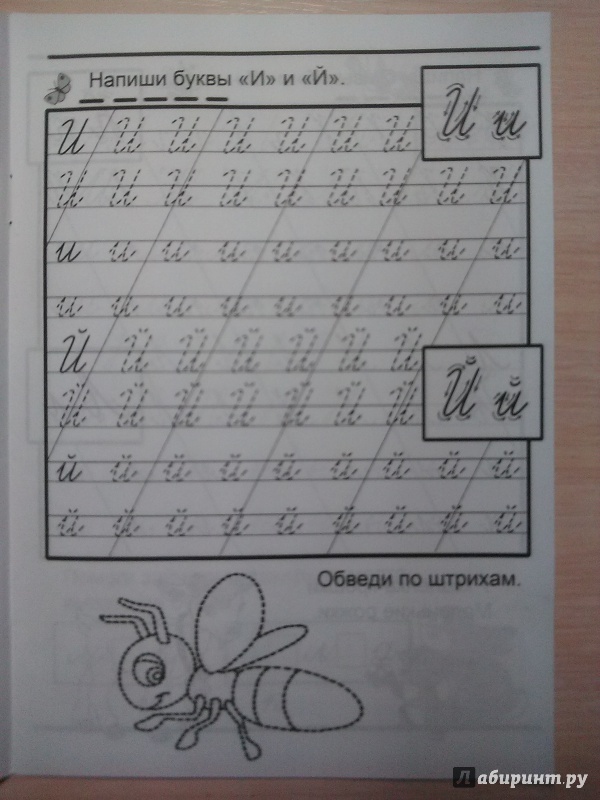 Напиши буквы «И» и «Й».
И и
И И И И И И И
И И И И И И И И И
и и и и и и и и и
и и и и и и и и и
Й й
Й Й Й Й Й Й Й
Й Й Й Й Й Й Й
й й й й й й й й й
й й й й й й й й й
Обведи по штрихам.
Лабиринт.ру